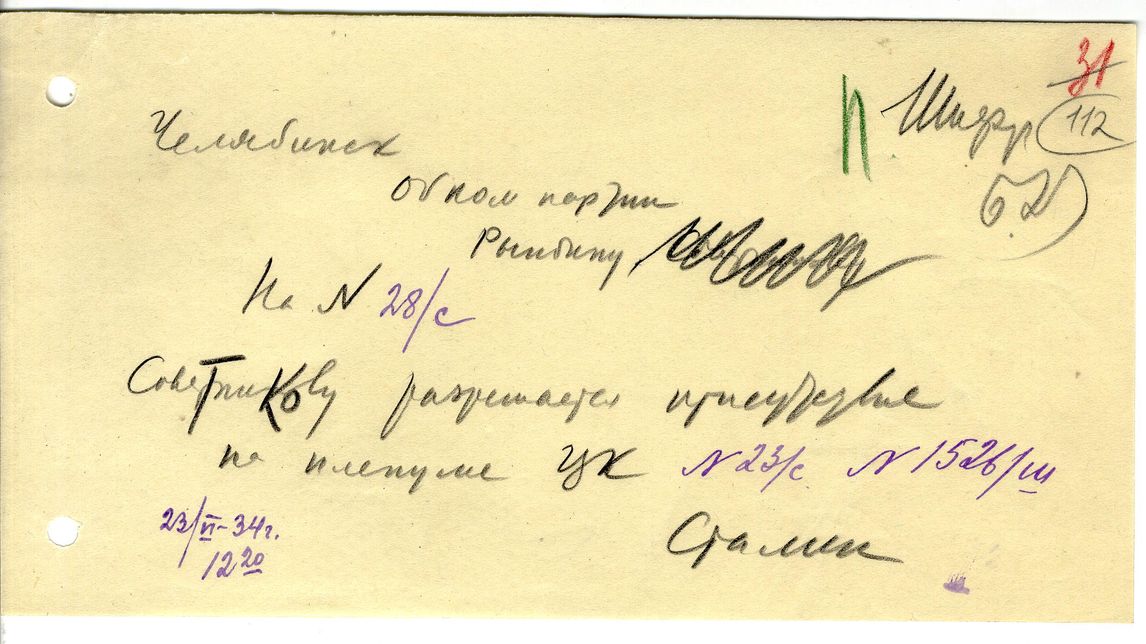 31
П Шифр 112
Челябинск
Обком партии
Рындину
На N 28/с
Советникову разрешается присутствие
на пленуме ЦК N 23/с N 1526/ш
23/VI-34г.
12 20
Сталин